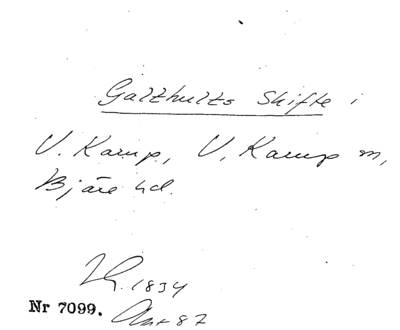 Galthults Skifte i
V. Karup, V. Karup sn,
Bjäre hd.
1834
Nr 7099.
87